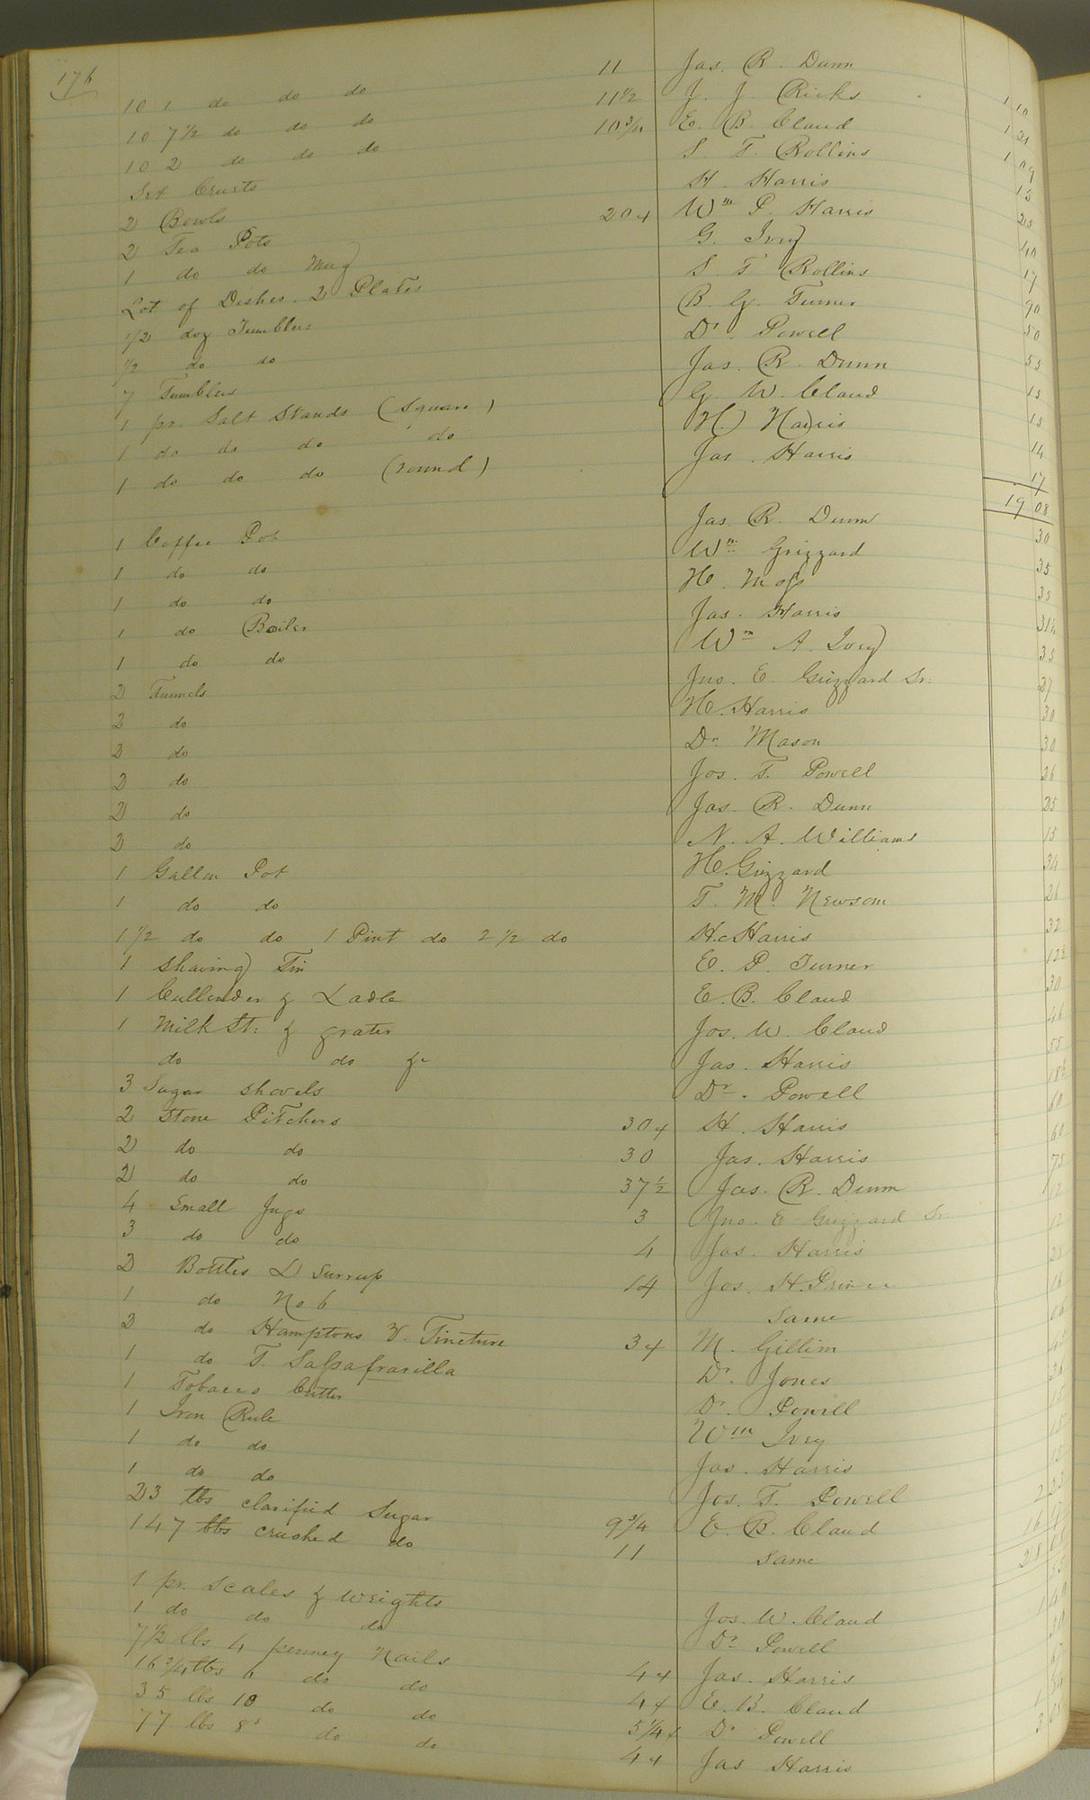 176
10 1 do do do 11 Jas. R. Dunn 1 10
10 7½ do do do 11½ J. J. Ricks 1 21
10 2 do do do 10¾ E. B. Claud 1 09
Set Cruits S. T. Rollins 15
2 Bowls H. Harris 25
2 Tea Pots 20 Wm P. Harris 40
1 do do Mug G. Ivey 17
Lot of Dishes. 2 Plates S. T. Rollins 90
½ doz Tumblers B. G. Turner 50
½ do do Dr. Powell 55
7 Tumblers Jas. R. Dunn
1 pr. Salt Stands (Square) G. W. Claud 15
1 do do do do H. Harris 14
1 do do do (round) Jas. Harris 17
19 08
1 Coffee Pot Jas. R. Dunn 30
1 do do Wm Grizzard 35
1 do do H. Moss 35
1 do Boiler Jas. Harris
1 do do Wm A. Ivey 35
2 Funnels Jno. E. Grizzard Sr. 27
2 do H. Harris 30
2 do Dr. Mason 30
2 do Jos. T. Powell 26
2 do Jas. R. Dunn 25
2 do N. A. Williams 15
1 Gallon Pot H. Grizzard
1 do do T. M. Newsom 26
1 ½ do do 1 Pint do 2 ½ do H. Harris 32
1 Shaving Tin E. P. Turner 12½
1 Cullender & Ladle E. B. Claud 30
1 Milk St: & grater Jos. W. Claud 46
do do &c Jas. Harris 55
3 Sugar shovels Dr. Powell
2 Stone Pitchers 30 H. Harris 60
2 do do 30 Jas. Harris 60
2 do do 37½ Jas. R. Dunn 75
4 Small Jugs 3 Jno. E. Grizzard Sr. 12
3 do do 4 Jas. Harris 12
2 Bottles L Surrup 14 Jos. H. Prince
1 do No 6 Same
2 do Hamptons V. Tincture 3 M. Gillim
1 do T. Salsafrarilla Dr. Jones
1 Tobacco Cutter Dr. Powell
1 Iron Rule Wm Ivey
1 do do Jas. Harris
1 do do Jos. T. Powell
23 lbs clarified Sugar 9¾ E. B. Claud
147 lbs crushed do 11 Same
1 pr. Scales & Weights Jos. W. Claud
1 do do do Dr. Powell
7½ lbs 4 penney Nails 4 Jas. Harris
16¾ lbs 6 do do 4 E. B. Claud
35 lbs 10 do do 5¼ Dr. Powell
77 lbs 8d do do 4 Jas Harris